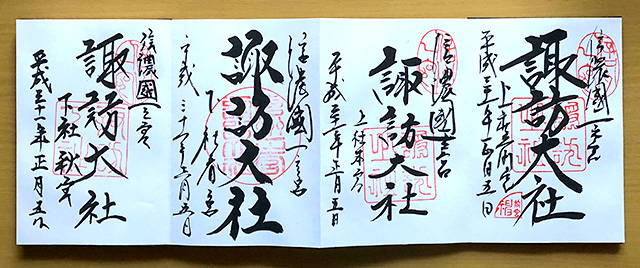 信濃國一之宮
諏訪大社
上社前宮
平成三十一年正月五日
信濃國一之宮
諏訪大社
上社本宮
平成三十一年正月五日
信濃國一之宮
諏訪大社
下社春宮
平成三十一年正月五日
信濃國一之宮
諏訪大社
下社秋宮
平成三十一年正月五日